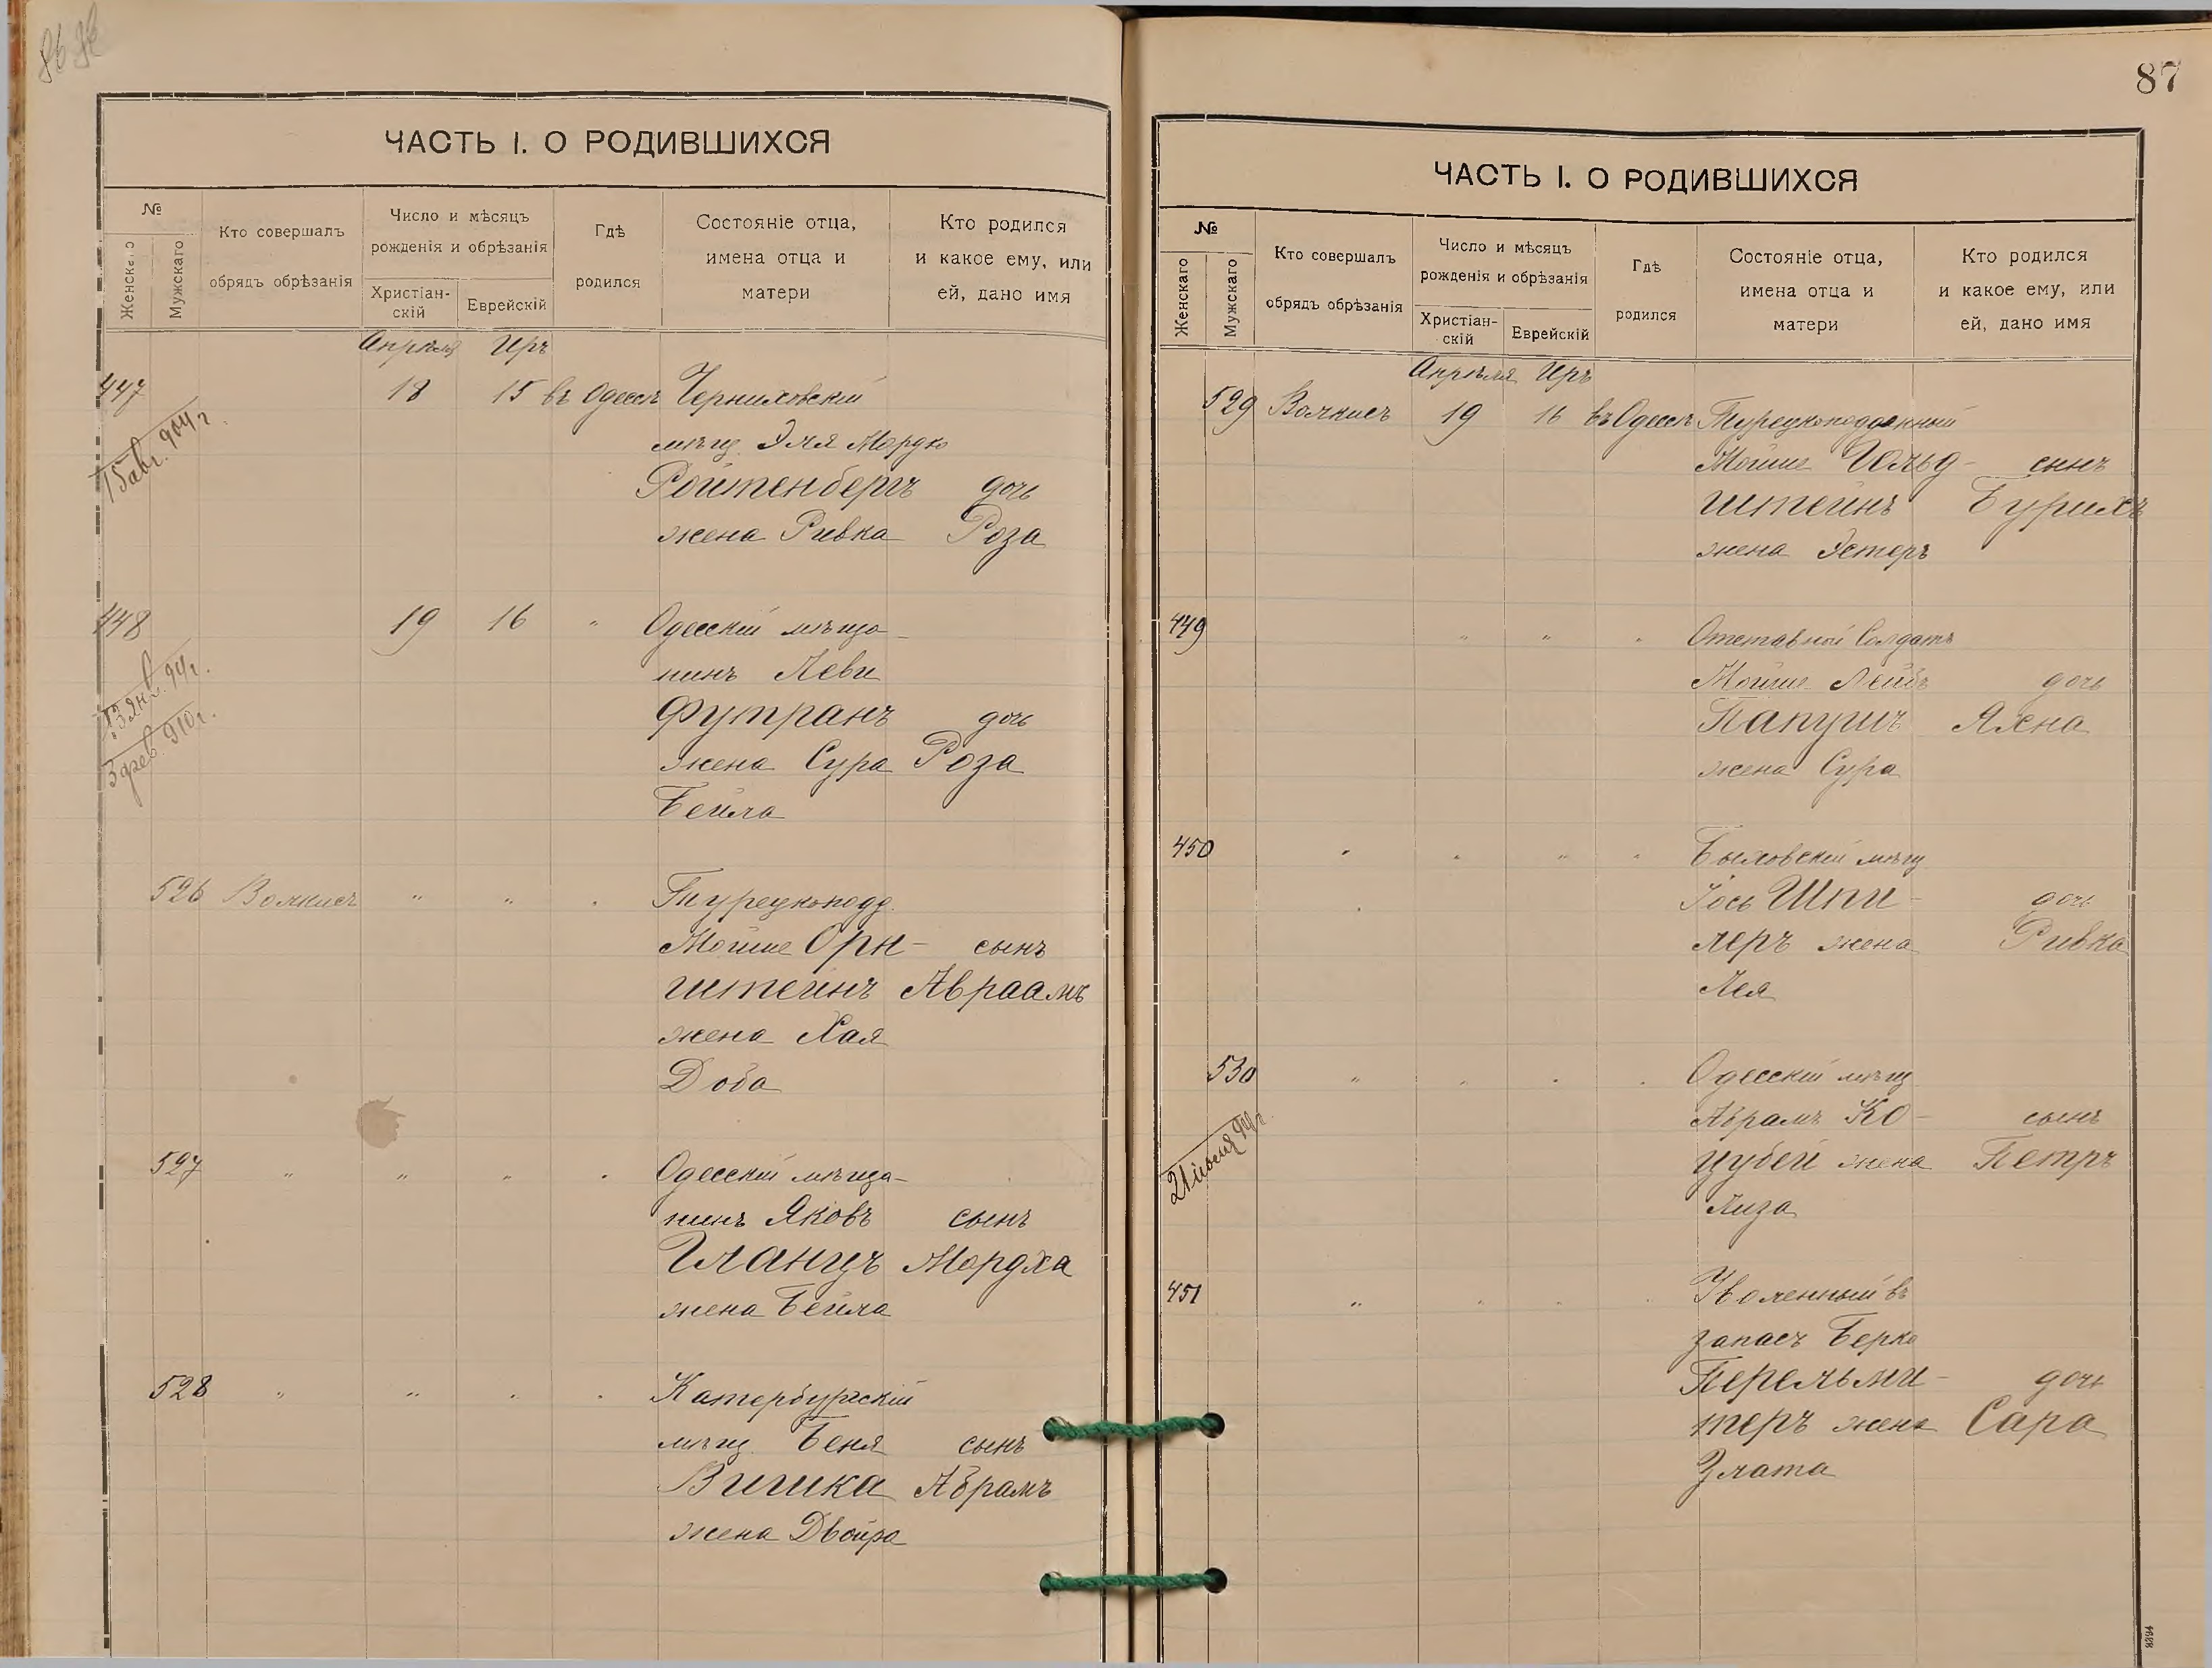 86
ЧАСТЬ I. О РОДИВШИХСЯ
№
Женска о
Мужскаго
Кто совершалъ
обрядъ обрѣзанія
Число и мѣсяцъ
рожденія и обрѣзанія
Христіан-
скій
Еврейскій
Гдѣ
родился
Состояніе отца,
имена отца и
матери
Кто родился
и какое ему, или
ей, дано имя
Апрѣля Иръ
447 18 15 въ Одессѣ Черниховскій
мѣщ. Эля Мордко
Ройтенбергъ дочь
жена Ривка Роза
15 авг. 904 г.
448 19 16 " Одесскій мѣща-
нинъ Леви
Футранъ дочь
жена Сура Роза
Бейла
13 Янв. 94 г.
3 фев. 910 г.
526 Волкисъ " " " Турецкоподд.
Мойше Орн- сынъ
штейнъ Авраамъ
жена Хая
Доба
527 " " " " Одесскій мѣща-
нинъ Яковъ сынъ
Гланцъ Мордха
жена Бейла
528 " " " " Катербургскій
мѣщ. Беня сынъ
Вишка Абрамъ
жена Двойра
87
ЧАСТЬ I. О РОДИВШИХСЯ
№
Женскаго
Мужскаго
Кто совершалъ
обрядъ обрѣзанія
Число и мѣсяцъ
рожденія и обрѣзанія
Христіан-
скій
Еврейскій
Гдѣ
родился
Состояніе отца,
имена отца и
матери
Кто родился
и какое ему, или
ей, дано имя
Апрѣля Иръ
529 Волкисъ 19 16 въ Одессѣ Турецкоподданный
Мойше Гольд- сынъ
штейнъ Бурихъ
жена Эстеръ
449 " " " Отставной Солдатъ
Мойше Лейбъ дочь
Папушъ Яхна
жена Сура
450 " " " " Быховскій мѣщ
Іось Шпи- дочь
леръ жена Ривка
Лея
530 " " " " Одесскій мѣщ
Абрамъ Ко- сынъ
цубей жена Петръ
Лиза
451 " " " " Уволенный въ
запасъ Берко
Перельми- дочь
теръ жена Сара
Злата
8394